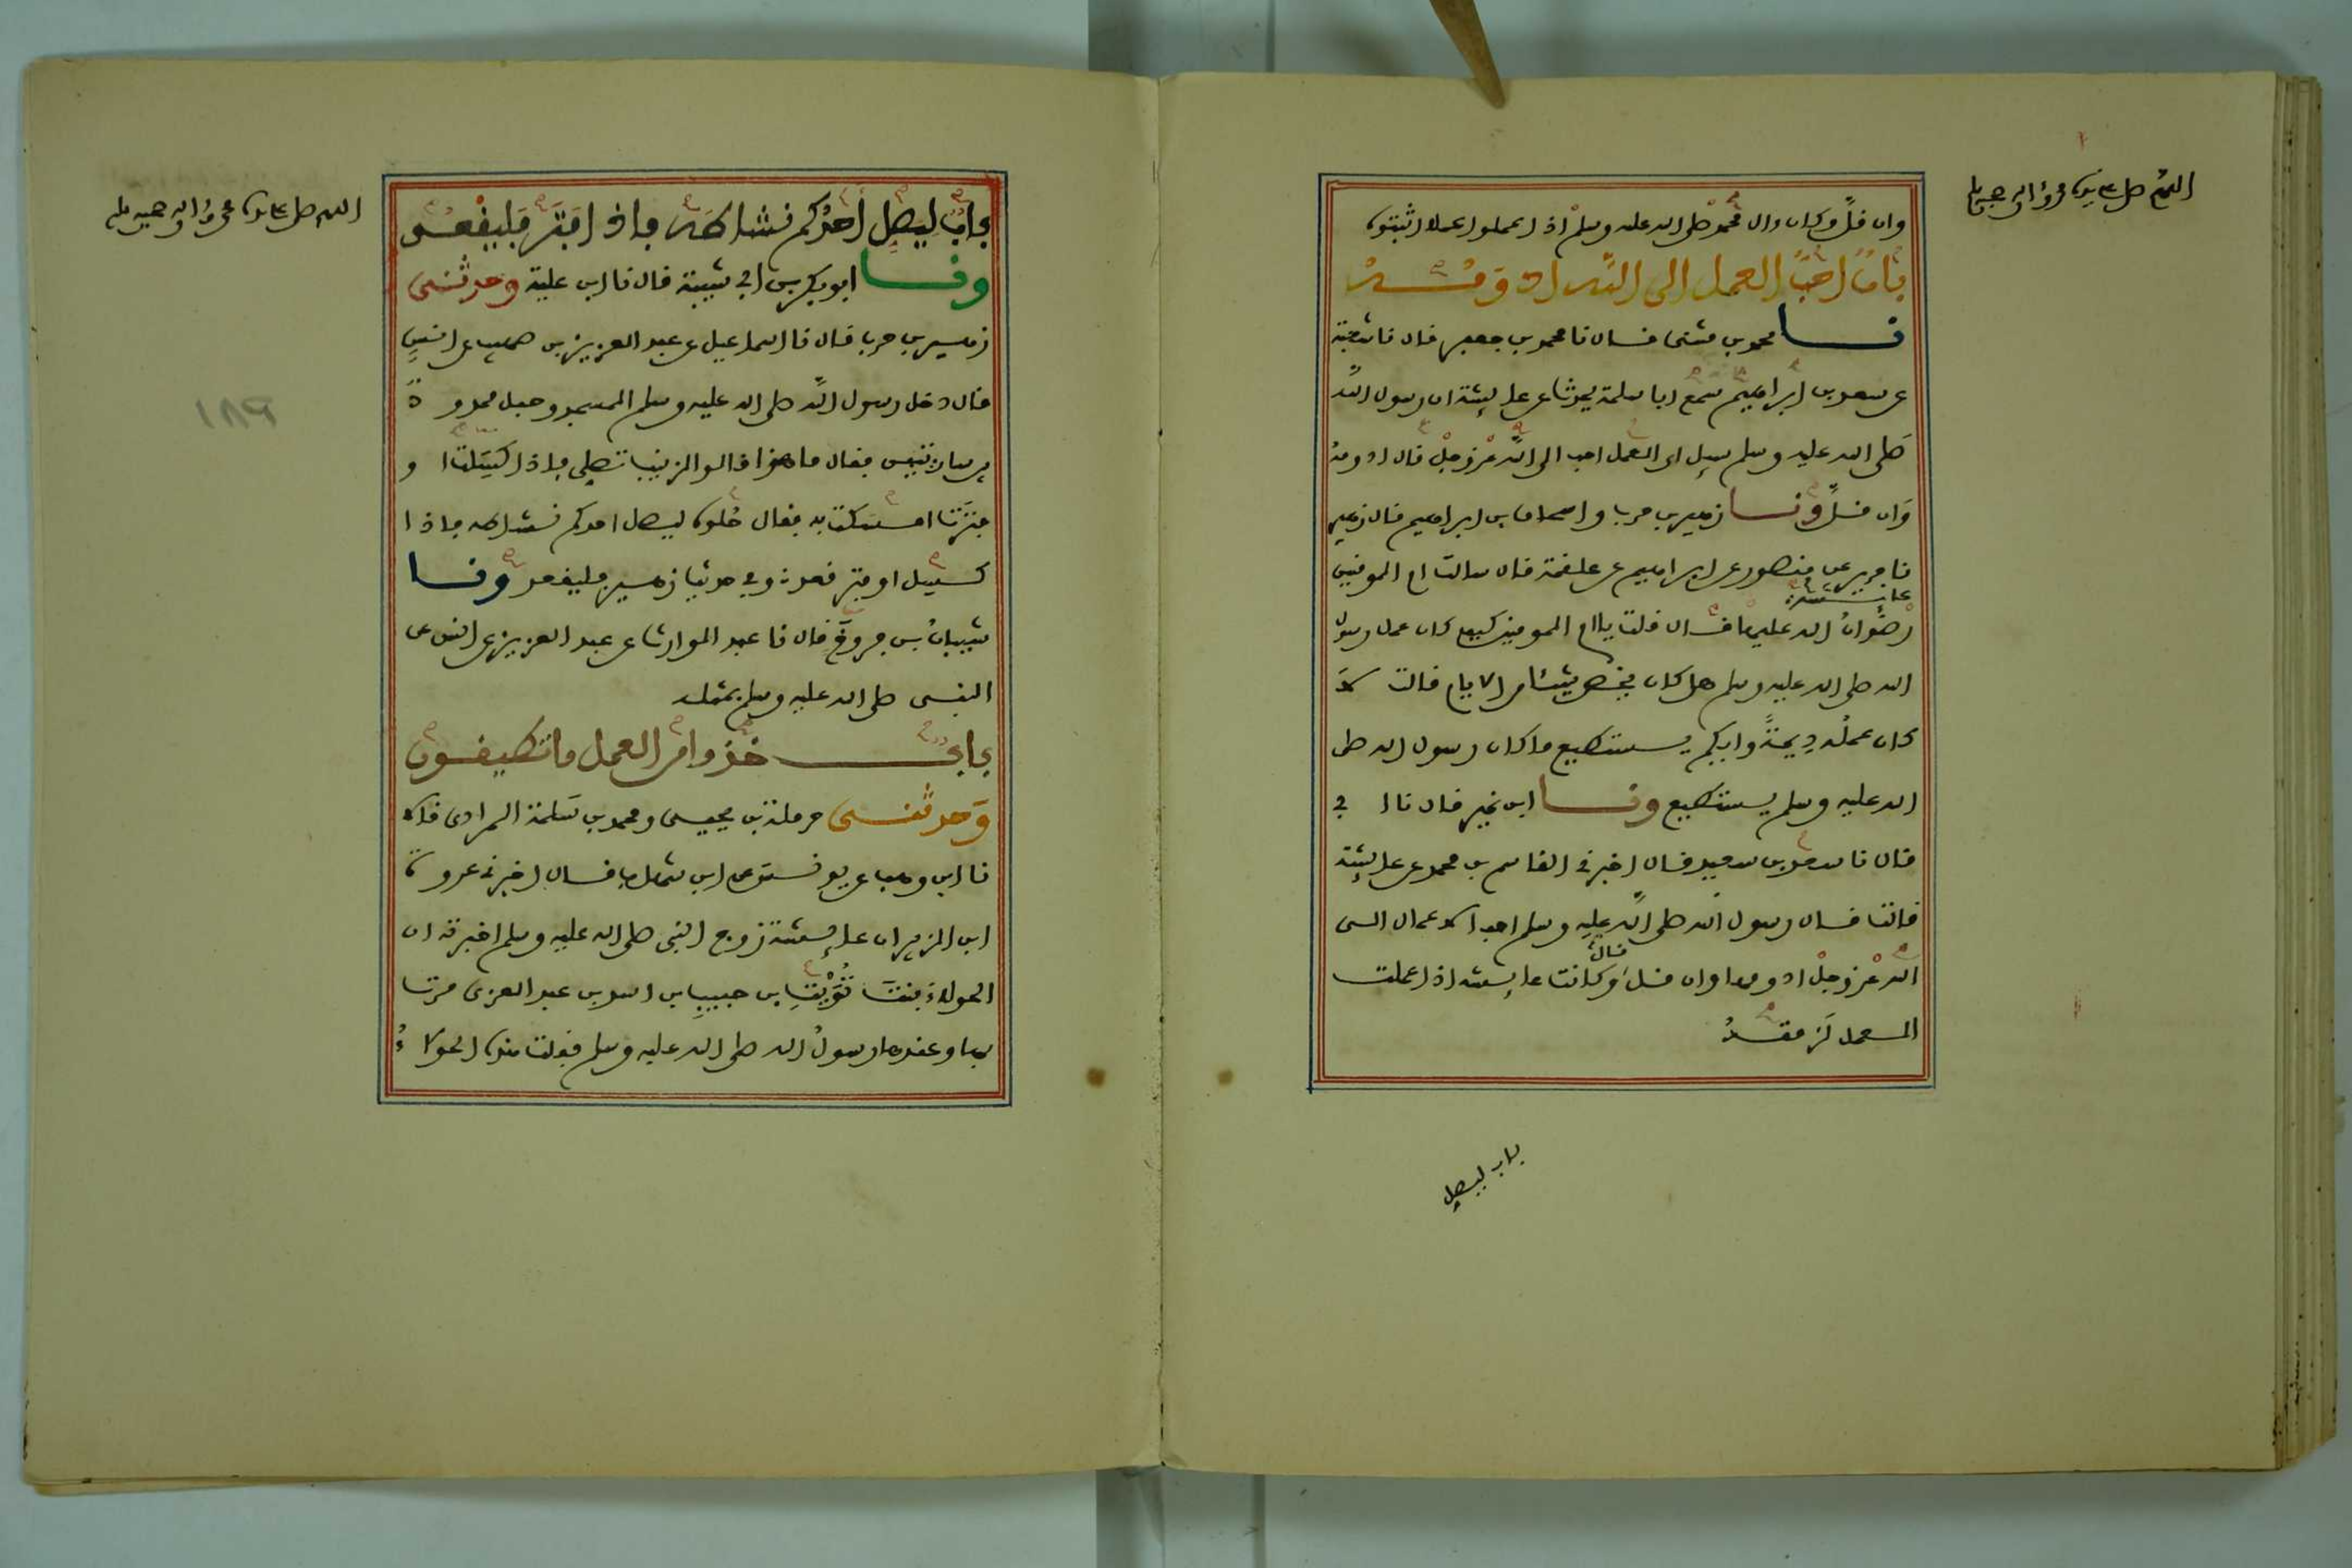 اللهم صل على سيدنا محمد وآله وصحبه وسلم
وان قل وكان ءال محمد صلى الله عليه وسلم اذا عملوا عملا اثبتوه
باب احب العمل الى الله ادومه
نا محمد بن مثنى قال نا محمد بن جعفر قال نا شعبة
عن سعد بن ابراهيم سمع ابا سلمة يحدث عن عايشة ان رسول الله
صلى الله عليه وسلم سيل اى العمل احب الى الله عز وجل قال ادومه
وان قل ونا زهير بن حرب واسحاق بن ابراهيم قال زهير
نا جرير عن منصور عن ابراهيم عن علقمة قال سالت ام المومنين
عايشة
رضوان الله عليها قال قلت يا ام المومنين كيف كان عمل رسول
الله صلى الله عليه وسلم هل كان يخص شيئا من الايام قالت لا
كان عمله ديمة وايكم يستطيع ما كان رسول الله صلى
الله عليه وسلم يستطيع ونا ابن نمير قال نا ابي
قال نا سعد بن سعيد قال اخبرني القاسم بن محمد عن عايشة
قالت قال رسول الله صلى الله عليه وسلم احب الاعمال الى
الله عز وجل ادومها وان قل قال وكانت عايشة اذا عملت
العمل لزمته
باب ليصل
اللهم صل على سيدنا محمد وآله وصحبه وسلم
باب ليصل احدكم نشاطه فاذا فتر فليقعد
ونا ابو بكر بن ابي شيبة قال نا ابن علية وحدثني
زهير بن حرب قال نا اسماعيل عن عبد العزيز بن صهيب عن انس
قال دخل رسول الله صلى الله عليه وسلم المسجد وحبل ممدود
بين ساريتين فقال ما هذا قالوا لزينب تصلي فاذا كسلت او
فترت امسكت به فقال حلوه ليصل احدكم نشاطه فاذا
كسل او فتر قعد وفي حديث زهير فليقعد ونا
شيبان بن فروخ قال نا عبد الوارث عن عبد العزيز عن انس عن
النبي صلى الله عليه وسلم بمثله
باب خذوا من العمل ما تطيقون
وحدثني حرملة بن يحيى ومحمد بن سلمة المرادى قالا
نا ابن وهب عن يونس عن ابن شهاب قال اخبرني عروة
ابن الزبير ان عايشة زوج النبي صلى الله عليه وسلم اخبرته ان
الحولاء بنت تويت بن حبيب بن اسد بن عبد العزى مرت
بها وعندها رسول الله صلى الله عليه وسلم فقلت هذه الحولاء